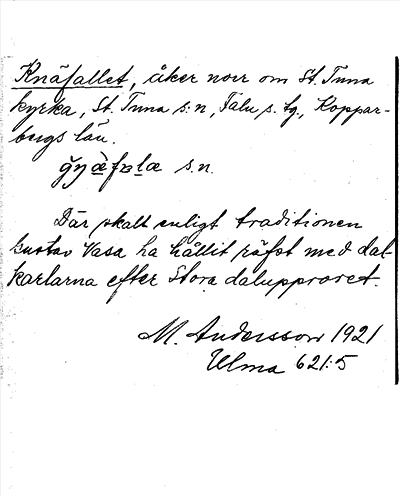 Knäfallet, åker norr om St. Tuna
kyrka, St. Tuna s:n, Falu s. tg., Koppar-
bergs län.
s.n.
Där skall enligt traditionen
Gustav Vasa ha hållit räfst med dal-
karlarna efter Stora dalupproret.
M. Andersson 1921
Ulma 621:5